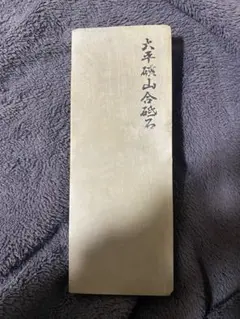 大平磺山合砥石